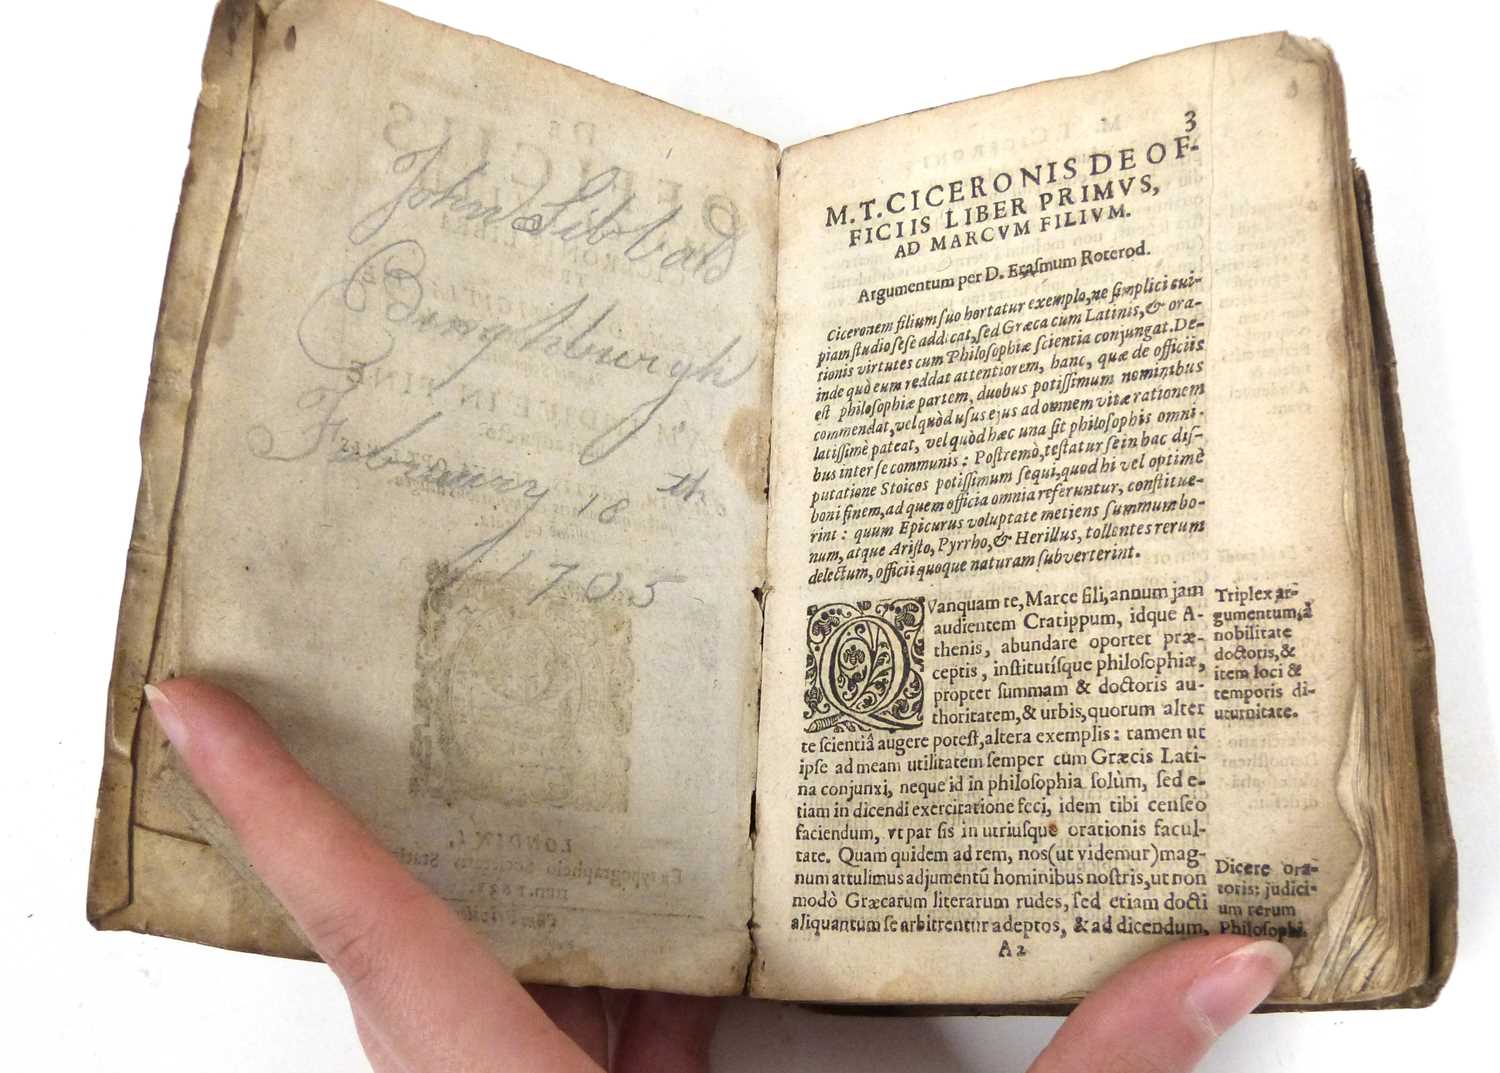 John Sibbald
Binghburgh
February 18th
1705
3
M. T. CICERONIS DE OF-
FICIIS LIBER PRIMVS,
AD MARCVM FILIVM.
Argumentum per D. Erasmum Roterod.
Ciceronem filium suo hortatur exemplo, ne simplici cui-
piam studio sese addicat, sed Græca cum Latinis, & ora-
tionis virtutes cum Philosophiæ scientia conjungat. De-
inde quò eum reddat attentiorem, hanc, quæ de officiis
est philosophiæ partem, duobus potissimum nominibus
commendat, vel quòd usus ejus ad omnem vitæ rationem
latissimè pateat, vel quòd hæc una sit philosophis omni-
bus inter se communis: Postremò, testatur se in hac dis-
putatione Stoicos potissimum sequi, quod hi vel optimè
boni finem, ad quem officia omnia referuntur, constitue-
rint: quum Epicurus voluptate metiens summum bo-
num, atque Aristo, Pyrrho, & Herillus, tollentes rerum
delectum, officii quoque naturam subverterint.
QVanquam te, Marce fili, annum jam
audientem Cratippum, idque A-
thenis, abundare oportet præ-
ceptis, institutísque philosophiæ,
propter summam & doctoris au-
thoritatem, & urbis, quorum alter
te scientiâ augere potest, altera exemplis: tamen ut
ipse ad meam utilitatem semper cum Græcis Lati-
na conjunxi, neque id in philosophia solùm, sed e-
tiam in dicendi exercitatione feci, idem tibi censeo
faciendum, vt par sis in utriusque orationis facul-
tate. Quam quidem ad rem, nos (ut videmur) mag-
num attulimus adjumentū hominibus nostris, ut non
modò Græcarum literarum rudes, sed etiam docti
aliquantum se arbitrentur adeptos, & ad dicendum,
A 2
Triplex ar-
gumentum, à
nobilitate
doctoris, &
item loci &
temporis di-
uturnitate.
Dicere ora-
toris: judici-
um rerum
Philosophi.